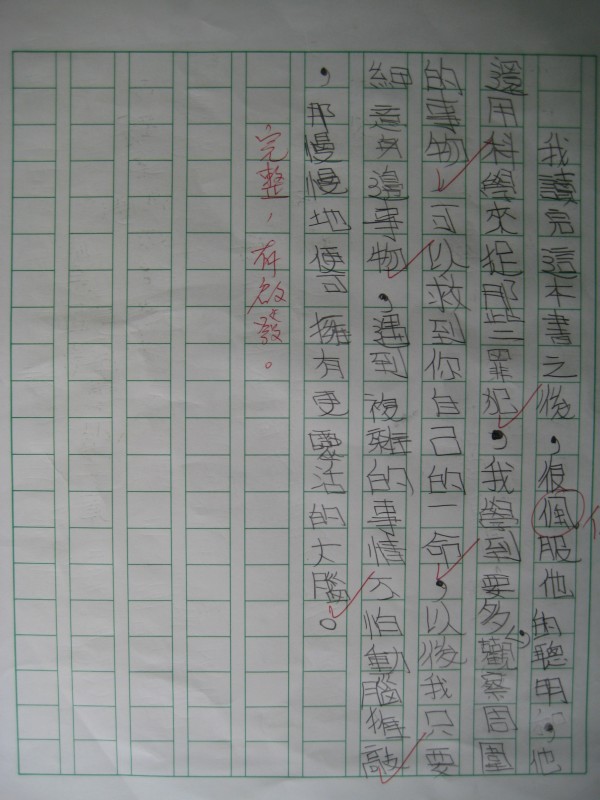 我讀完這本書之後,很佩服他的聰明,他
還用科學來捉那些罪犯,我學到要多觀察周圍
的事物,可以救到你自己的一命,以後我只要
細意身邊事物,遇到複雜的事情不怕動腦推敲
,那慢慢地便可擁有更靈活的大腦。
完整,有啟發。